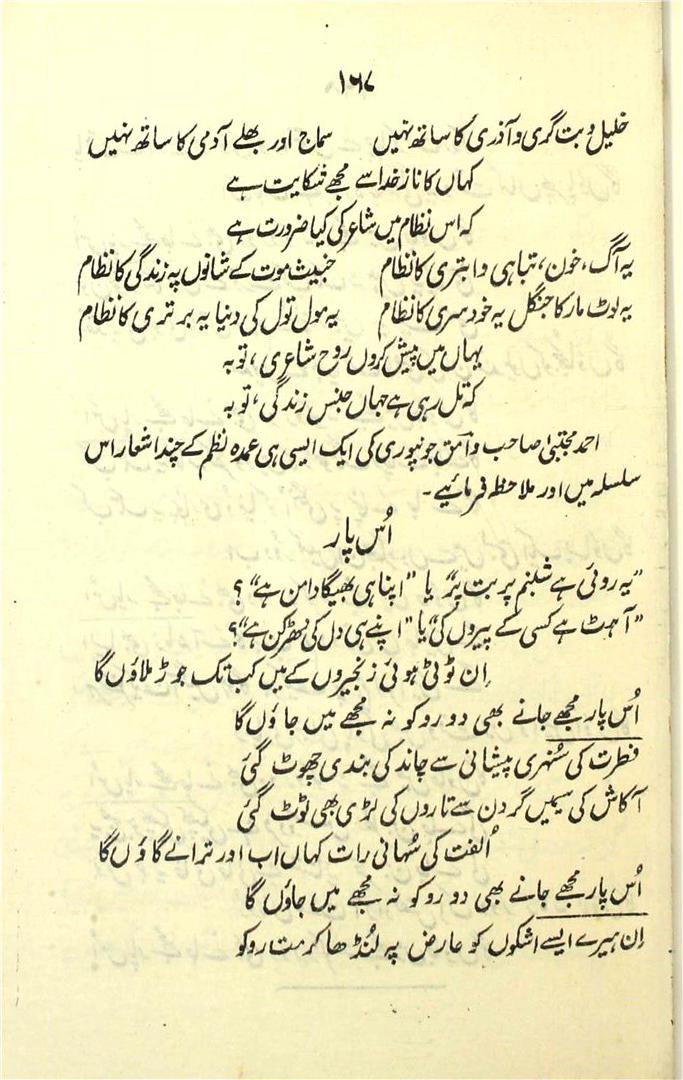 ۱۶۷
خلیل و بت گری و آذری کا ساتھ نہیں سماج اور بھلے آدمی کا ساتھ نہیں
کہاں کا ناز خدا سے مجھے شکایت ہے
کہ اس نظام میں شاعر کی کیا ضرورت ہے
یہ آگ، خون، تباہی و ابتری کا نظام خبیث موت کے شانوں پہ زندگی کا نظام
یہ لوٹ مار کا جنگل یہ خود سری کا نظام یہ مول تول کی دنیا یہ برتری کا نظام
یہاں میں پیش کروں روح شاعری، توبہ
کہ تل رہی ہے جہاں جنس زندگی، توبہ
احمد مجتبیٰ صاحب وامق جونپوری کی ایک ایسی ہی عمدہ نظم کے چند اشعار اس
سلسلہ میں اور ملاحظہ فرمائیے۔
اُس پار
"یہ روئی ہے شبنم پربت پر" یا "اپنا ہی بھیگا دامن ہے"؟
"آہٹ ہے کسی کے پیروں کی" یا "اپنے ہی دل کی دھڑکن ہے"؟
اِن ٹوٹی ہوئی زنجیروں کے میں کب تک جوڑ ملاؤں گا
اُس پار مجھے جانے بھی دو روکو نہ مجھے میں جاؤں گا
فطرت کی سُنہری پیشانی سے چاند کی بندی چھوٹ گئی
آکاش کی سیمیں گردن سے تاروں کی لڑی بھی ٹوٹ گئی
اُلفت کی سُہانی رات کہاں اب اور ترانے گاؤں گا
اُس پار مجھے جانے بھی دو روکو نہ مجھے میں جاؤں گا
اِن ہیرے ایسے اشکوں کو عارض پہ لُنڈھا کر مت روکو